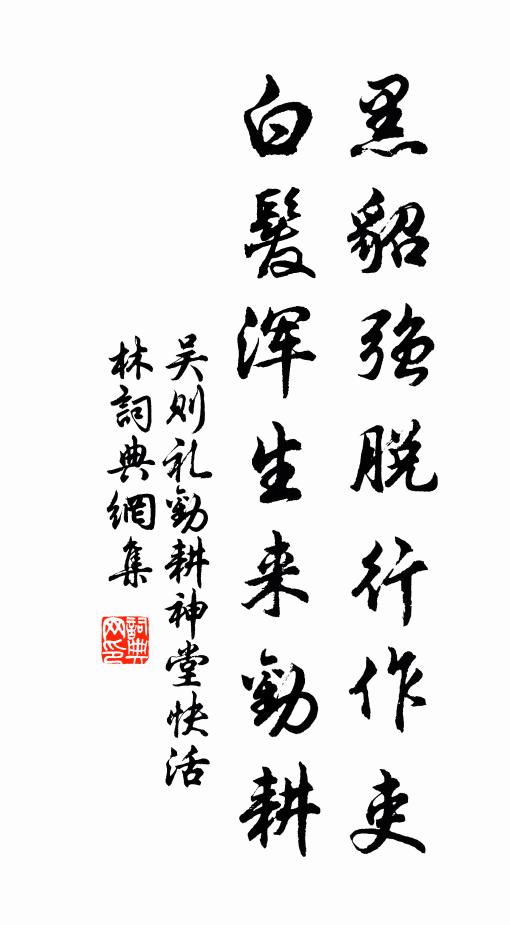 黑貂強脫行作吏
白髮渾生来勸耕
吴则礼勸耕神堂快活
林詞典網集
詞典
网印